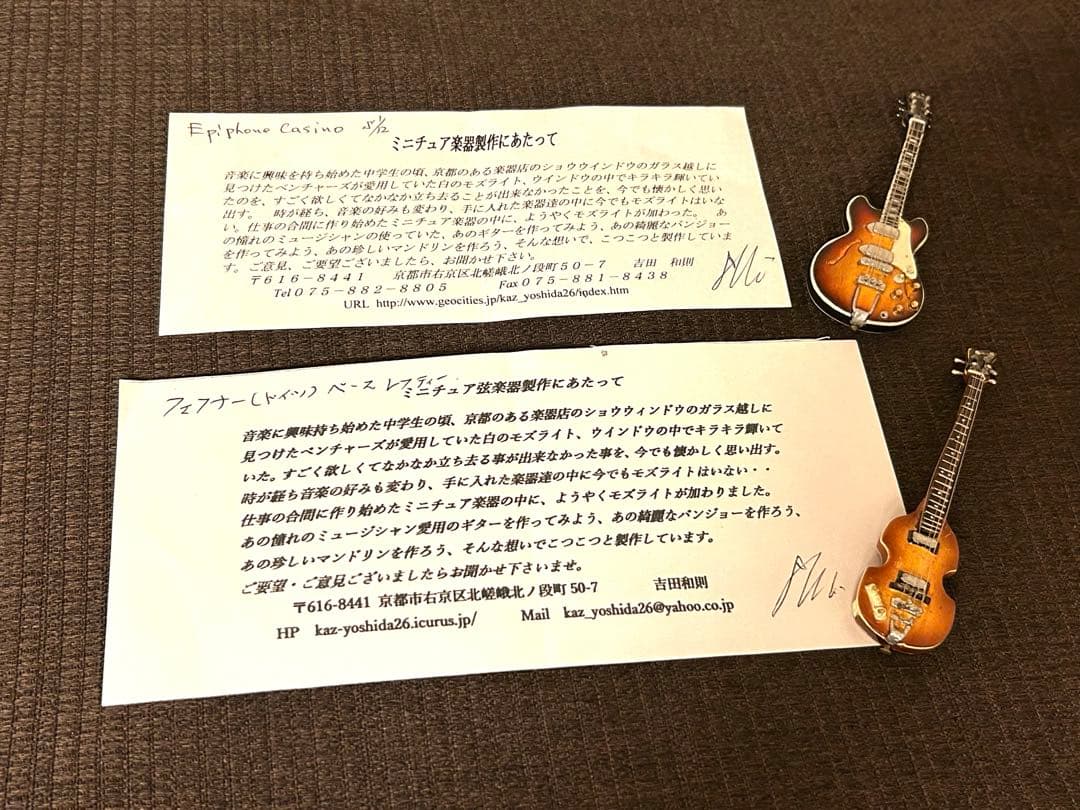 Epiphone Casino 5/12
ミニチュア楽器製作にあたって
音楽に興味を持ち始めた中学生の頃、京都のある楽器店のショウウインドウのガラス越しに
見つけたベンチャーズが愛用していた白のモズライト、ウインドウの中でキラキラ輝いてい
たのを、すごく欲しくてなかなか立ち去ることが出来なかったことを、今でも懐かしく思い
出す。 時が経ち、音楽の好みも変わり、手に入れた楽器達の中に今でもモズライトはいな
い。仕事の合間に作り始めたミニチュア楽器の中に、ようやくモズライトが加わった。 あ
の憧れのミュージシャンの使っていた、あのギターを作ってみよう、あの綺麗なバンジョー
を作ってみよう、あの珍しいマンドリンを作ろう、そんな想いで、こつこつと製作していま
す。ご意見、ご要望ございましたら、お聞かせ下さい。
〒616-8441 京都市右京区北嵯峨北ノ段町50-7 吉田 和則
Tel 075-882-8805 Fax 075-881-8438
URL http://www.geocities.jp/kaz_yoshida26/index.htm
フェフナー(ドイツ) ベース レフティー
ミニチュア弦楽器製作にあたって
音楽に興味持ち始めた中学生の頃、京都のある楽器店のショウウィンドウのガラス越しに
見つけたベンチャーズが愛用していた白のモズライト、ウインドウの中でキラキラ輝いて
いた。すごく欲しくてなかなか立ち去る事が出来なかった事を、今でも懐かしく思い出す。
時が経ち音楽の好みも変わり、手に入れた楽器達の中に今でもモズライトはいない・・
仕事の合間に作り始めたミニチュア楽器の中に、ようやくモズライトが加わりました。
あの憧れのミュージシャン愛用のギターを作ってみよう、あの綺麗なバンジョーを作ろう、
あの珍しいマンドリンを作ろう、そんな想いでこつこつと製作しています。
ご要望・ご意見ございましたらお聞かせ下さいませ。
〒616-8441 京都市右京区北嵯峨北ノ段町 50-7 吉田和則
HP kaz-yoshida26.icurus.jp/ Mail kaz_yoshida26@yahoo.co.jp